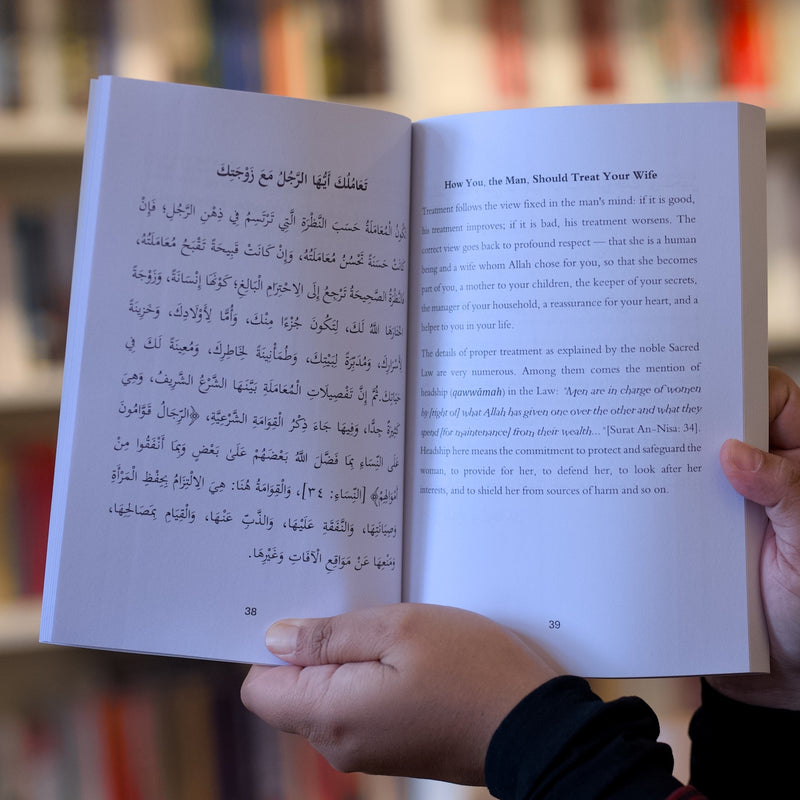 تَعَامُلُكَ أَيُّهَا الرَّجُلُ مَعَ زَوْجَتِكَ
تَكُونُ الْمُعَامَلَةُ حَسَبَ النَّظْرَةِ الَّتِي تَرْتَسِمُ فِي ذِهْنِ الرَّجُلِ؛ فَإِنْ
كَانَتْ حَسَنَةً تَحْسُنُ مُعَامَلَتُهُ، وَإِنْ كَانَتْ قَبِيحَةً تَقْبَحُ مُعَامَلَتُهُ،
وَالنَّظْرَةُ الصَّحِيحَةُ تَرْجِعُ إِلَى الِاحْتِرَامِ الْبَالِغِ؛ كَوْنُهَا إِنْسَانَةً، وَزَوْجَةً
اخْتَارَهَا اللَّهُ لَكَ، لِتَكُونَ جُزْءًا مِنْكَ، وَأُمًّا لِأَوْلَادِكَ، وَخَزِينَةً
لِأَسْرَارِكَ، وَمُدَبِّرَةً لِبَيْتِكَ، وَطُمَأْنِينَةً لِخَاطِرِكَ، وَمُعِينَةً لَكَ فِي
حَيَاتِكَ. ثُمَّ إِنَّ تَفْصِيلَاتِ الْمُعَامَلَةِ بَيَّنَهَا الشَّرْعُ الشَّرِيفُ، وَهِيَ
كَثِيرَةٌ جِدًّا، وَفِيهَا جَاءَ ذِكْرُ الْقِوَامَةِ الشَّرْعِيَّةِ، ﴿الرِّجَالُ قَوَّامُونَ
عَلَى النِّسَاءِ بِمَا فَضَّلَ اللَّهُ بَعْضَهُمْ عَلَىٰ بَعْضٍ وَبِمَا أَنْفَقُوا مِنْ
أَمْوَالِهِمْ﴾ [النِّسَاءِ: ٣٤]، وَالْقِوَامَةُ هُنَا: هِيَ الِالْتِزَامُ بِحِفْظِ الْمَرْأَةِ
وَصِيَانَتِهَا، وَالنَّفَقَةِ عَلَيْهَا، وَالذَّبِّ عَنْهَا، وَالْقِيَامِ بِمَصَالِحِهَا،
وَمَنْعِهَا عَنْ مَوَاقِعِ الْآفَاتِ وَغَيْرِهَا.
38
How You, the Man, Should Treat Your Wife
Treatment follows the view fixed in the man's mind: if it is good,
his treatment improves; if it is bad, his treatment worsens. The
correct view goes back to profound respect — that she is a human
being and a wife whom Allah chose for you, so that she becomes
part of you, a mother to your children, the keeper of your secrets,
the manager of your household, a reassurance for your heart, and a
helper to you in your life.
The details of proper treatment as explained by the noble Sacred
Law are very numerous. Among them comes the mention of
headship (qawwāmah) in the Law: "Men are in charge of women
by [right of] what Allah has given one over the other and what they
spend [for maintenance] from their wealth..." [Surat An-Nisa: 34].
Headship here means the commitment to protect and safeguard the
woman, to provide for her, to defend her, to look after her
interests, and to shield her from sources of harm and so on.
39